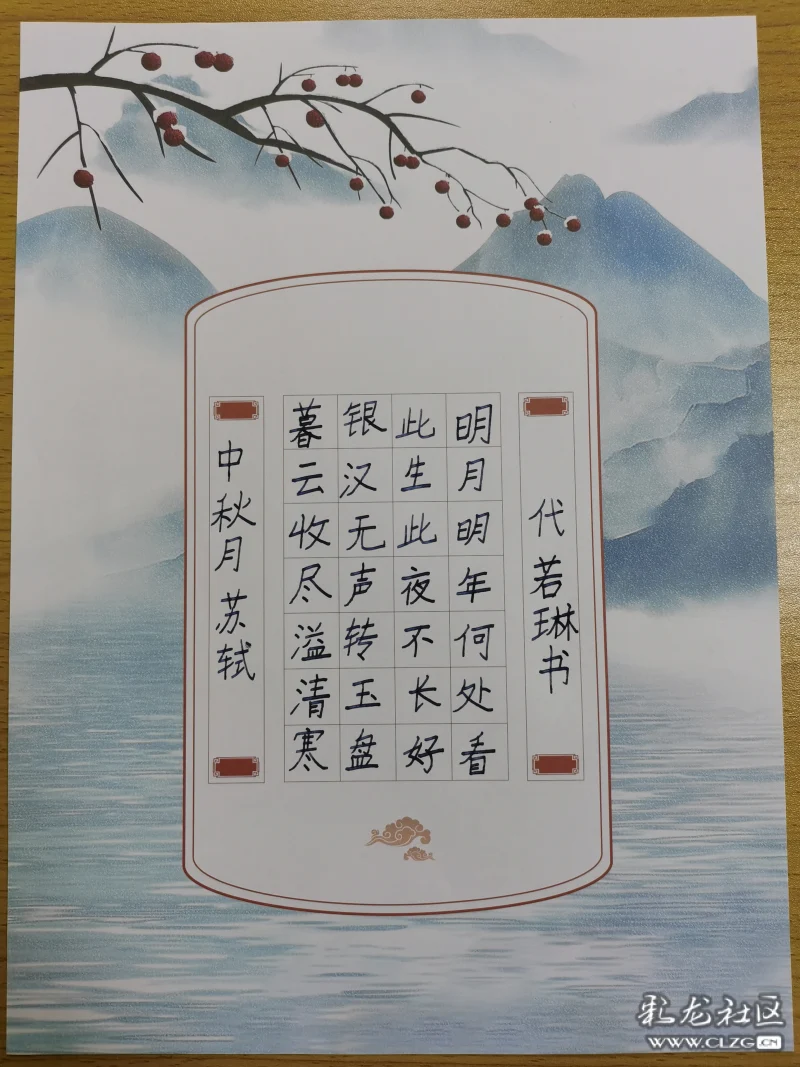 中秋月 苏轼
暮云收尽溢清寒
银汉无声转玉盘
此生此夜不长好
明月明年何处看
代若琳书
彩龙社区
www.CLZG.CN